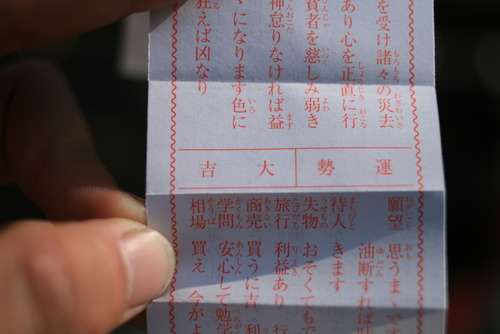 を受け諸々の災去
あり心を正直に行
貧者を慈しみ弱き
神怠りなければ益
々になります色に
狂えば凶なり
運勢
大吉
願望 思うま
油断すれば
待人 きます
失物 おそくても
旅行 利益あり 行
商売 買うに吉 利
学問 安心して勉学
相場 買え 今がよ